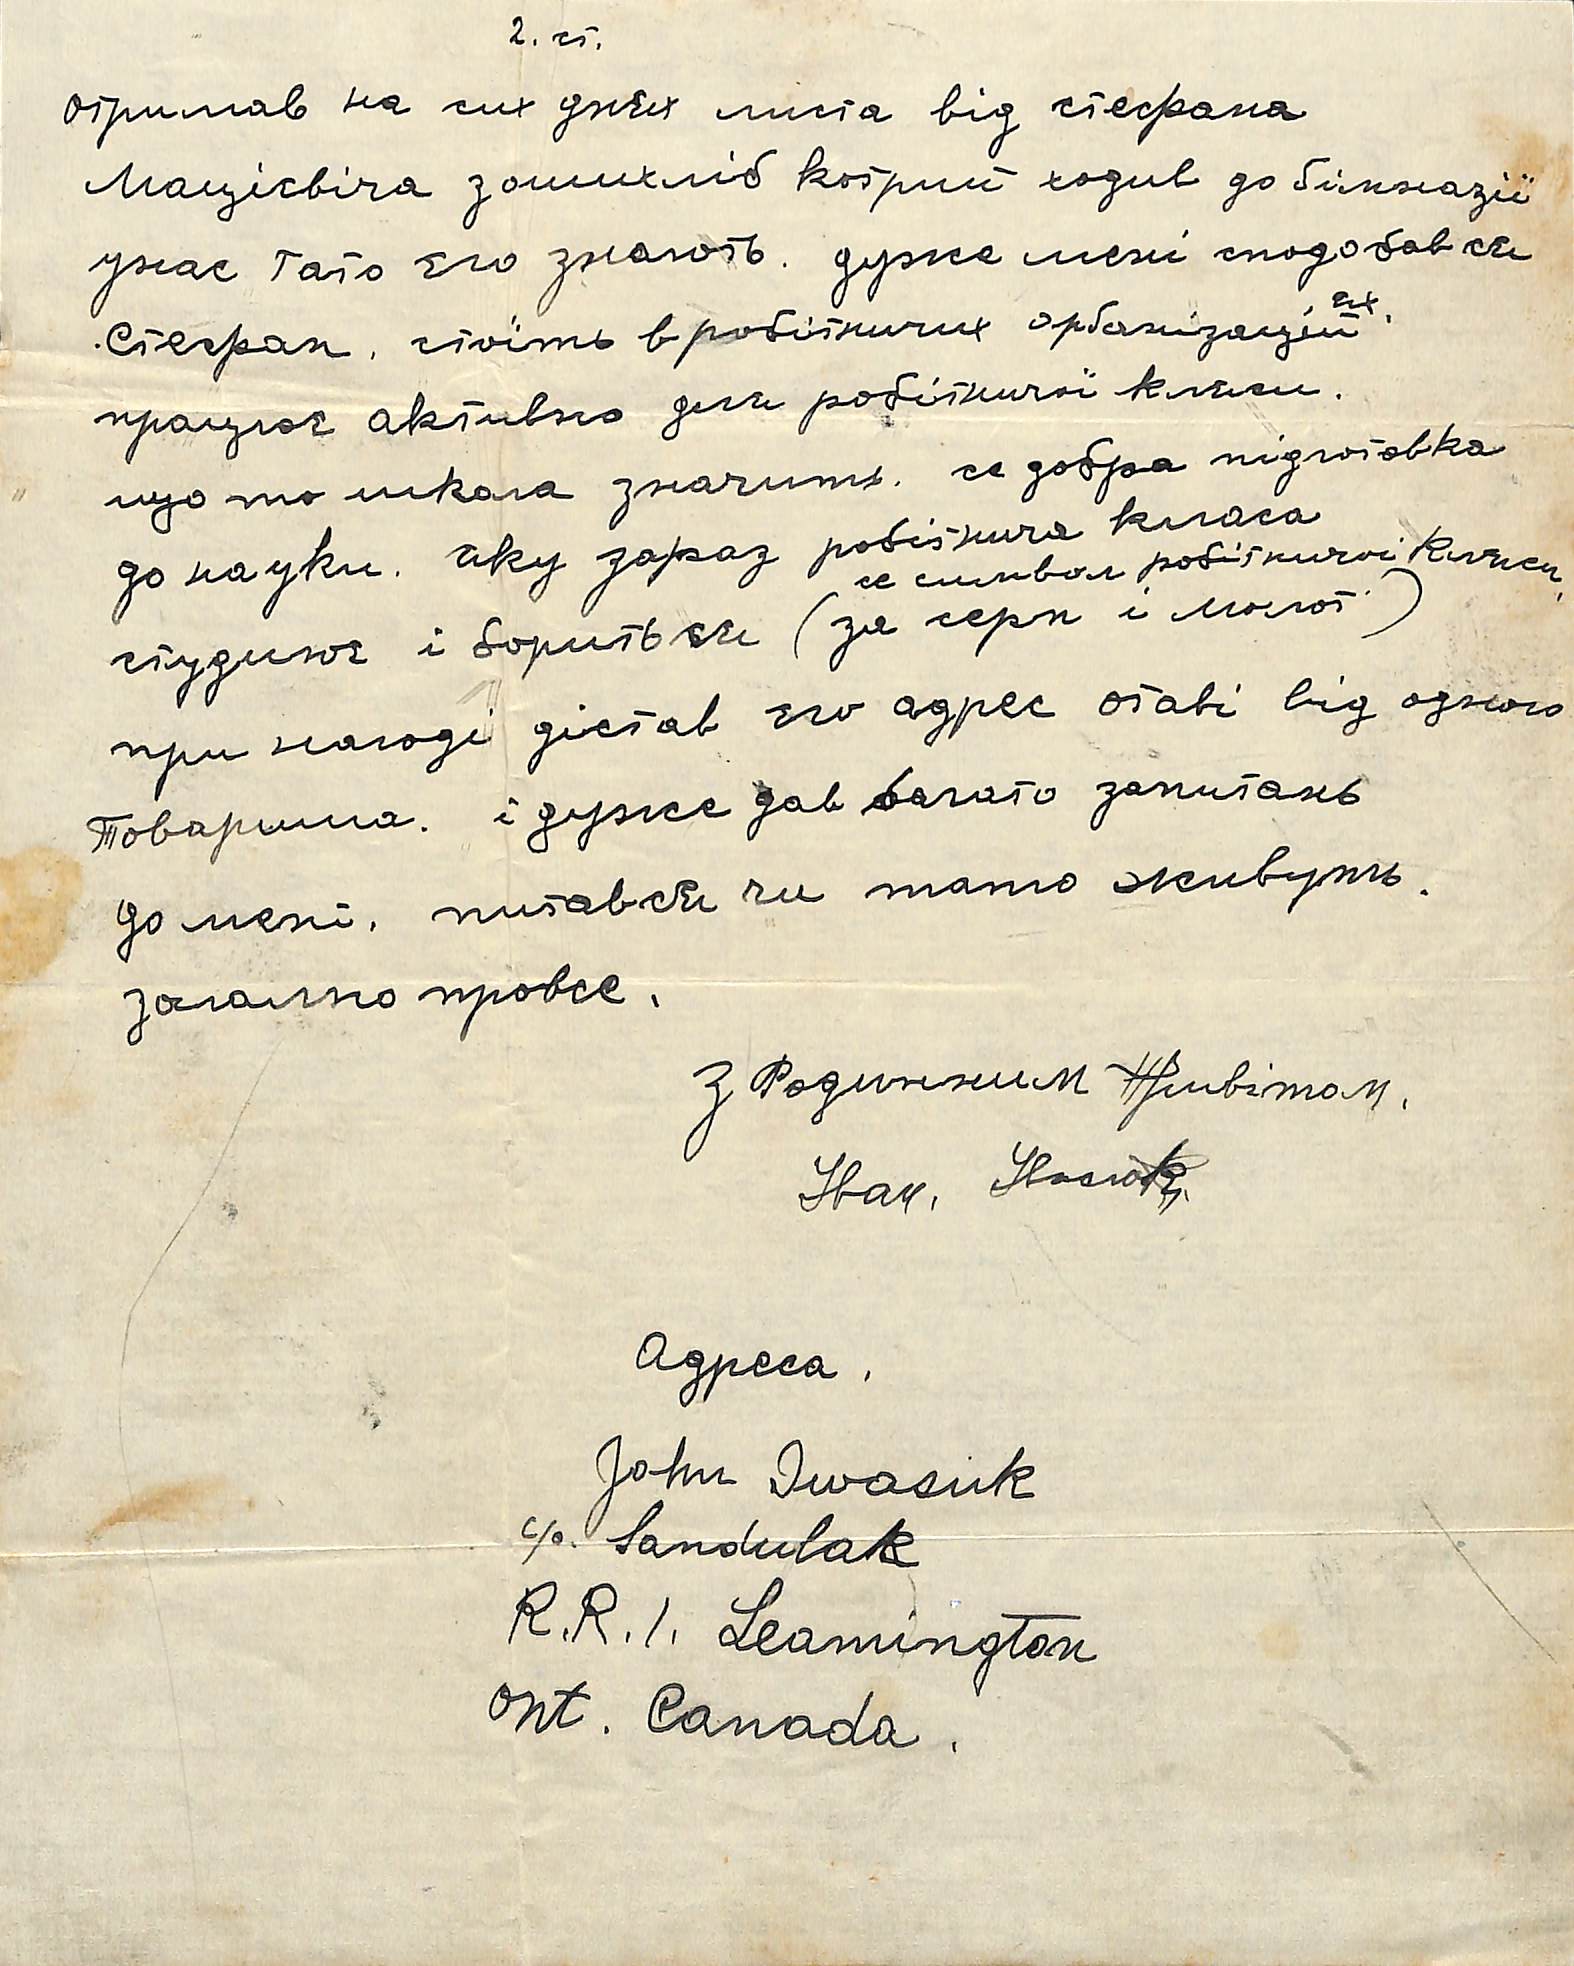 2. ст.
отримав на сих днєх листа від стефана
Мацієвіча зошихліб котрий ходив до бімназії
унас Тато єго знають. дуже мені сподобав сєи
Стефан, стоїть в робітничих орбанізацій ах.
працює активно длє робітничої клєси.
що то школа значить. се добра підготовка
до науки. єку зараз робітнича класа
се символ робітничої клєси,
студиює і борить сє (за серп і молот.)
при нагоді дістав єго адрес отаві від одного
Товариша. і дуже дав багато запитань
до мені, питавсє чи тато живуть.
загально провсе.
З Родинним Привітом,
Іван, Івасюк
Адреса,
John Iwasiuk
c/o. Sandulak
R.R.1. Leamington
Ont. Canada.